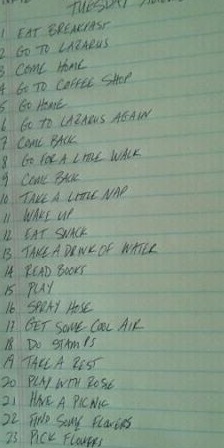 TUESDAY
1 EAT BREAKFAST
2 GO TO LAZARUS
3 COME HOME
4 GO TO COFFEE SHOP
5 GO HOME
6 GO TO LAZARUS AGAIN
7 COME BACK
8 GO FOR A LITTLE WALK
9 COME BACK
10 TAKE A LITTLE NAP
11 WAKE UP
12 EAT SNACK
13 TAKE A DRINK OF WATER
14 READ BOOKS
15 PLAY
16 SPRAY HOSE
17 GET SOME COOL AIR
18 DO STAMPS
19 TAKE A REST
20 PLAY WITH ROSE
21 HAVE A PICNIC
22 FIND SOME FLOWERS
23 PICK FLOWERS